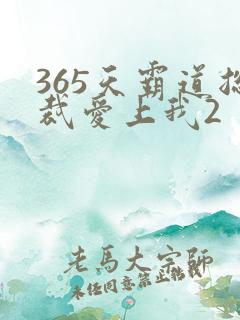 365天霸道总
裁爱上我2
老马大字师
未经同意禁止转载